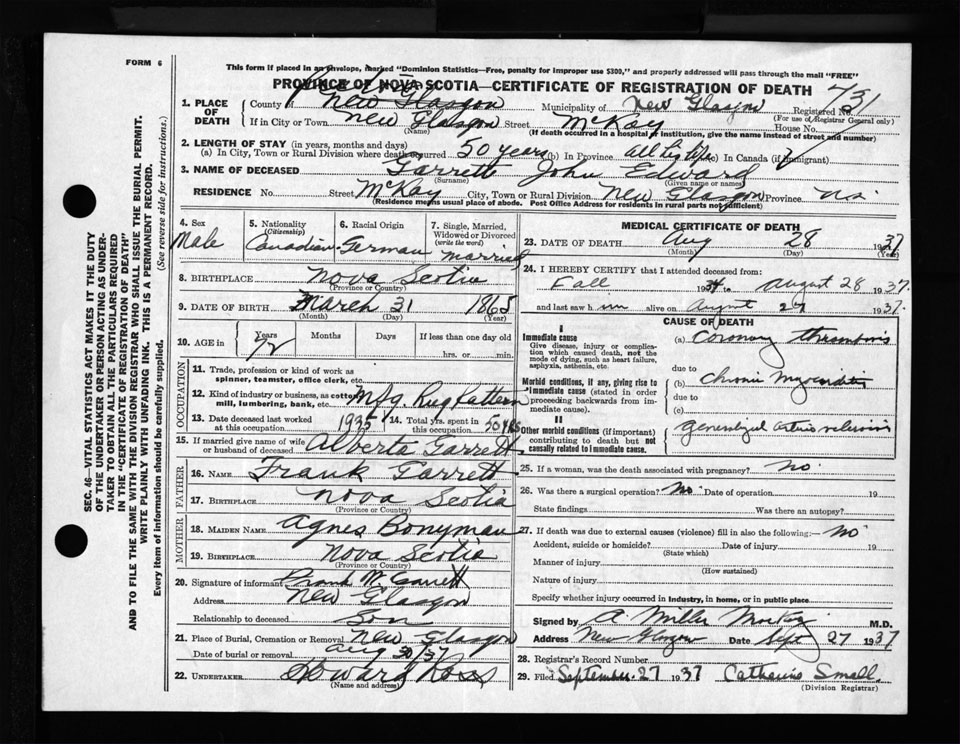 FORM 6
This form if placed in an envelope, marked "Dominion Statistics—Free, penalty for improper use $300," and properly addressed will pass through the mail "FREE"
PROVINCE OF NOVA SCOTIA—CERTIFICATE OF REGISTRATION OF DEATH
731
1. PLACE OF DEATH County New Glasgow Municipality of New Glasgow Registered No.
(For use of Registrar General only)
If in City or Town New Glasgow Street McKay House No.
(Name) (If death occurred in a hospital or institution, give the name instead of street and number)
2. LENGTH OF STAY (in years, months and days)
(a) In City, Town or Rural Division where death occurred 50 years (b) In Province all his life (c) In Canada (if immigrant)
3. NAME OF DECEASED Garrett John Edward
(Surname) (Given name or names)
RESIDENCE No. Street McKay City, Town or Rural Division New Glasgow Province N.S.
(Residence means usual place of abode. Post Office Address for residents in rural parts not sufficient)
4. Sex 5. Nationality (Citizenship) 6. Racial Origin 7. Single, Married, Widowed or Divorced (write the word)
Male Canadian German married
8. BIRTHPLACE Nova Scotia
(Province or Country)
9. DATE OF BIRTH March 31 1865
(Month) (Day) (Year)
10. AGE in Years Months Days If less than one day old
72 hrs. or min.
OCCUPATION
11. Trade, profession or kind of work as spinner, teamster, office clerk, etc.
12. Kind of industry or business, as cotton mill, lumbering, bank, etc. Mfg Rug Pattern
13. Date deceased last worked at this occupation 1935 14. Total yrs. spent in this occupation 50 yrs
15. If married give name of wife or husband of deceased Alberta Garrett
FATHER
16. NAME Frank Garrett
17. BIRTHPLACE Nova Scotia
(Province or Country)
MOTHER
18. MAIDEN NAME Agnes Bonyman
19. BIRTHPLACE Nova Scotia
(Province or Country)
20. Signature of informant Frank M Garrett
Address New Glasgow
Relationship to deceased Son
21. Place of Burial, Cremation or Removal New Glasgow
Date of burial or removal Aug 30/37
22. UNDERTAKER Howard Ross
(Name and address)
MEDICAL CERTIFICATE OF DEATH
23. DATE OF DEATH Aug 28 1937
(Month) (Day) (Year)
24. I HEREBY CERTIFY that I attended deceased from:
Fall 1934 to August 28 1937.
and last saw him alive on August 27 1937.
CAUSE OF DEATH
I
Immediate cause
Give disease, injury or complication which caused death, not the mode of dying, such as heart failure, asphyxia, asthenia, etc.
(a) Coronary thrombosis
due to
Morbid conditions, if any, giving rise to immediate cause (stated in order proceeding backwards from immediate cause).
(b) chronic myocarditis
due to
(c)
II
Other morbid conditions (if important) contributing to death but not causally related to immediate cause.
generalized arteriosclerosis
25. If a woman, was the death associated with pregnancy? no
26. Was there a surgical operation? no Date of operation 19
State findings Was there an autopsy?
27. If death was due to external causes (violence) fill in also the following:— no
Accident, suicide or homicide? Date of injury 19
(State which)
Manner of injury
(How sustained)
Nature of injury
Specify whether injury occurred in industry, in home, or in public place
Signed by A Miller M.D.
Address New Glasgow Date Sept 27 1937
28. Registrar's Record Number
29. Filed September 27 1937 Catharine Small
(Division Registrar)
SEC. 46—VITAL STATISTICS ACT MAKES IT THE DUTY
OF THE UNDERTAKER OR PERSON ACTING AS UNDER-
TAKER TO OBTAIN ALL THE PARTICULARS REQUIRED
IN THE "CERTIFICATE OF REGISTRATION OF DEATH"
AND TO FILE THE SAME WITH THE DIVISION REGISTRAR WHO SHALL ISSUE THE BURIAL PERMIT.
WRITE PLAINLY WITH UNFADING INK. THIS IS A PERMANENT RECORD.
Every item of information should be carefully supplied. (See reverse side for instructions.)